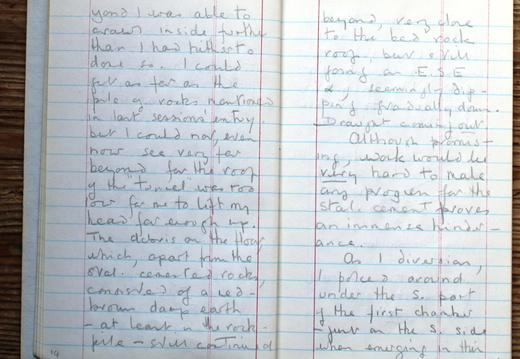 yond I was able to
crawl inside further
than I had hitherto
done so. I could
get as far as the
pile of rocks mentioned
in last session's entry
but I could not, even
now see very far
beyond for the roof
of the "tunnel" was too
low for me to lift my
head far enough up.
The debris on the floor,
which, apart from the
oval cemented rocks,
consisted of a red-
brown damp earth
- at least in the rock-
pile - still continued
19
beyond, very close
to the bed rock
roof, but still
going an E.S.E
&, seemingly dip-
ping gradually down.
Draught coming out
Although promis-
ing, work would be
very hard to make
any progress for the
stal. cement proves
an immense hinder-
ance.
As I diversion,
I poked around
under the S. part
of the first chamber
- just on the S. side
when emerging in this